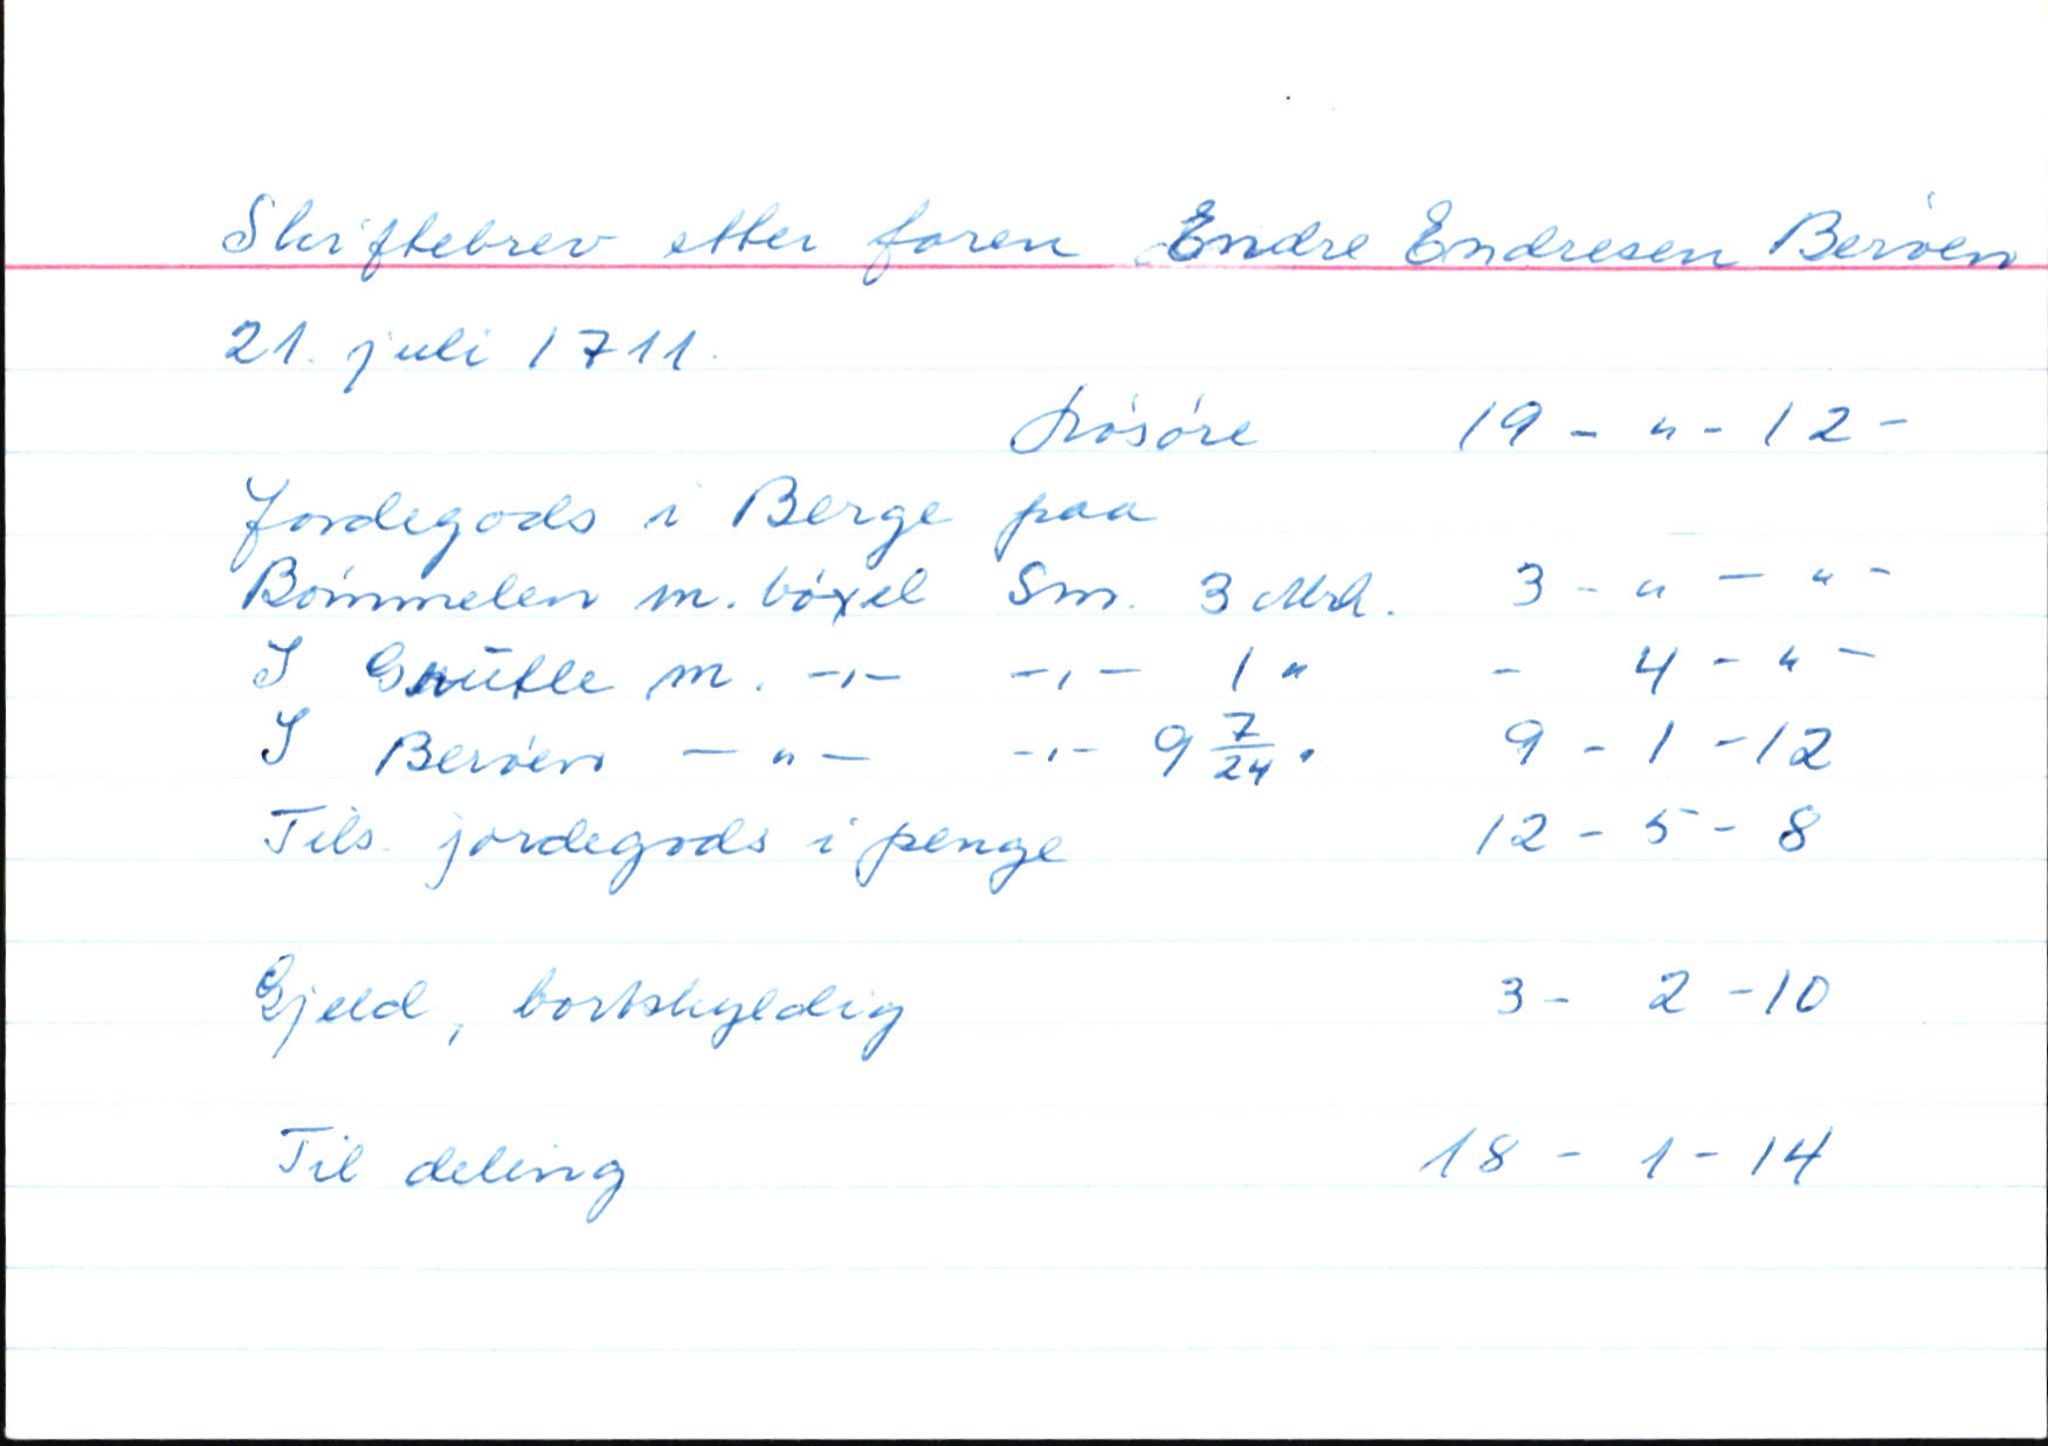 Skiftebrev etter faren Endre Endresen Beröen
21. juli 1711.
Lösöre 19 - " - 12 -
Jordegods i Berge paa
Bömmelen m. böxel Sm. 3 Mrk. 3 - " - " -
I m. -"- -"- 1 " - 4 - " -
I Beröen - " - -"- 9 7/24 " 9 - 1 - 12
Tils. jordegods i penge 12 - 5 - 8
Gjeld, bortskyldig 3 - 2 - 10
Til deling 18 - 1 - 14